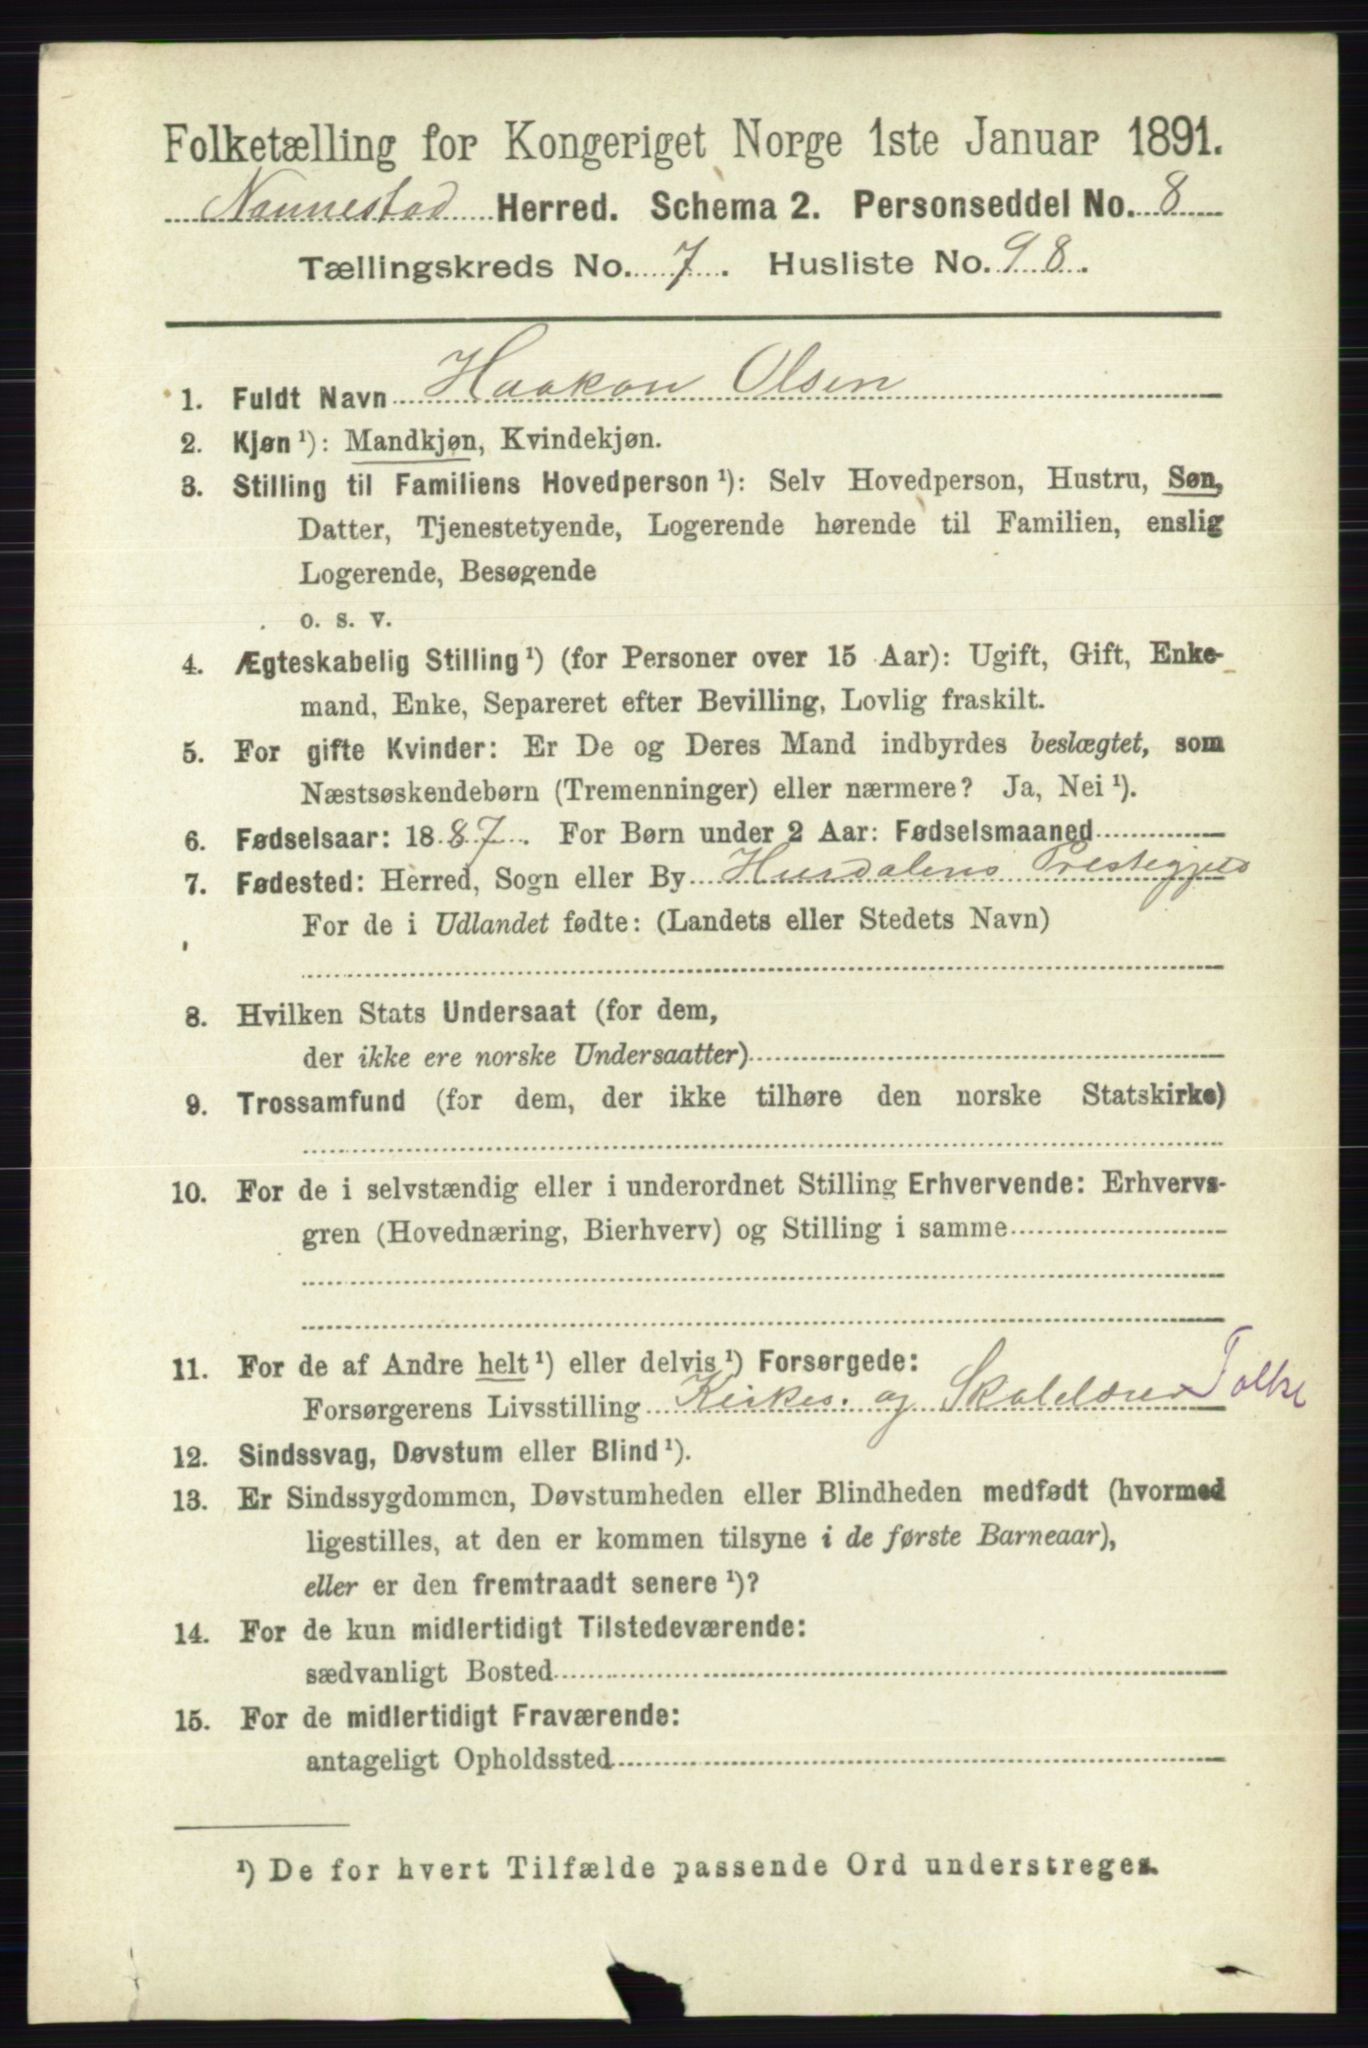 Folketælling for Kongeriget Norge 1ste Januar 1891.
Nannestad Herred. Schema 2. Personseddel No. 8
Tællingskreds No. 7. Husliste No. 98.
1. Fuldt Navn Haakon Olsen
2. Kjøn ¹): Mandkjøn, Kvindekjøn.
3. Stilling til Familiens Hovedperson ¹): Selv Hovedperson, Hustru, Søn,
Datter, Tjenestetyende, Logerende hørende til Familien, enslig
Logerende, Besøgende
o. s. v.
4. Ægteskabelig Stilling ¹) (for Personer over 15 Aar): Ugift, Gift, Enke-
mand, Enke, Separeret efter Bevilling, Lovlig fraskilt.
5. For gifte Kvinder: Er De og Deres Mand indbyrdes beslægtet, som
Næstsøskendebørn (Tremenninger) eller nærmere? Ja, Nei ¹).
6. Fødselsaar: 1887. For Børn under 2 Aar: Fødselsmaaned
7. Fødested: Herred, Sogn eller By Hurdalens Prestegjeld
For de i Udlandet fødte: (Landets eller Stedets Navn)
8. Hvilken Stats Undersaat (for dem,
der ikke ere norske Undersaatter)
9. Trossamfund (for dem, der ikke tilhøre den norske Statskirke)
10. For de i selvstændig eller i underordnet Stilling Erhvervende: Erhvervs-
gren (Hovednæring, Bierhverv) og Stilling i samme
11. For de af Andre helt ¹) eller delvis ¹) Forsørgede:
Forsørgerens Livsstilling Kirkes. og Skolelærer Folke
12. Sindssvag, Døvstum eller Blind ¹).
13. Er Sindssygdommen, Døvstumheden eller Blindheden medfødt (hvormed
ligestilles, at den er kommen tilsyne i de første Barneaar),
eller er den fremtraadt senere ¹)?
14. For de kun midlertidigt Tilstedeværende:
sædvanligt Bosted
15. For de midlertidigt Fraværende:
antageligt Opholdssted
¹) De for hvert Tilfælde passende Ord understreges.